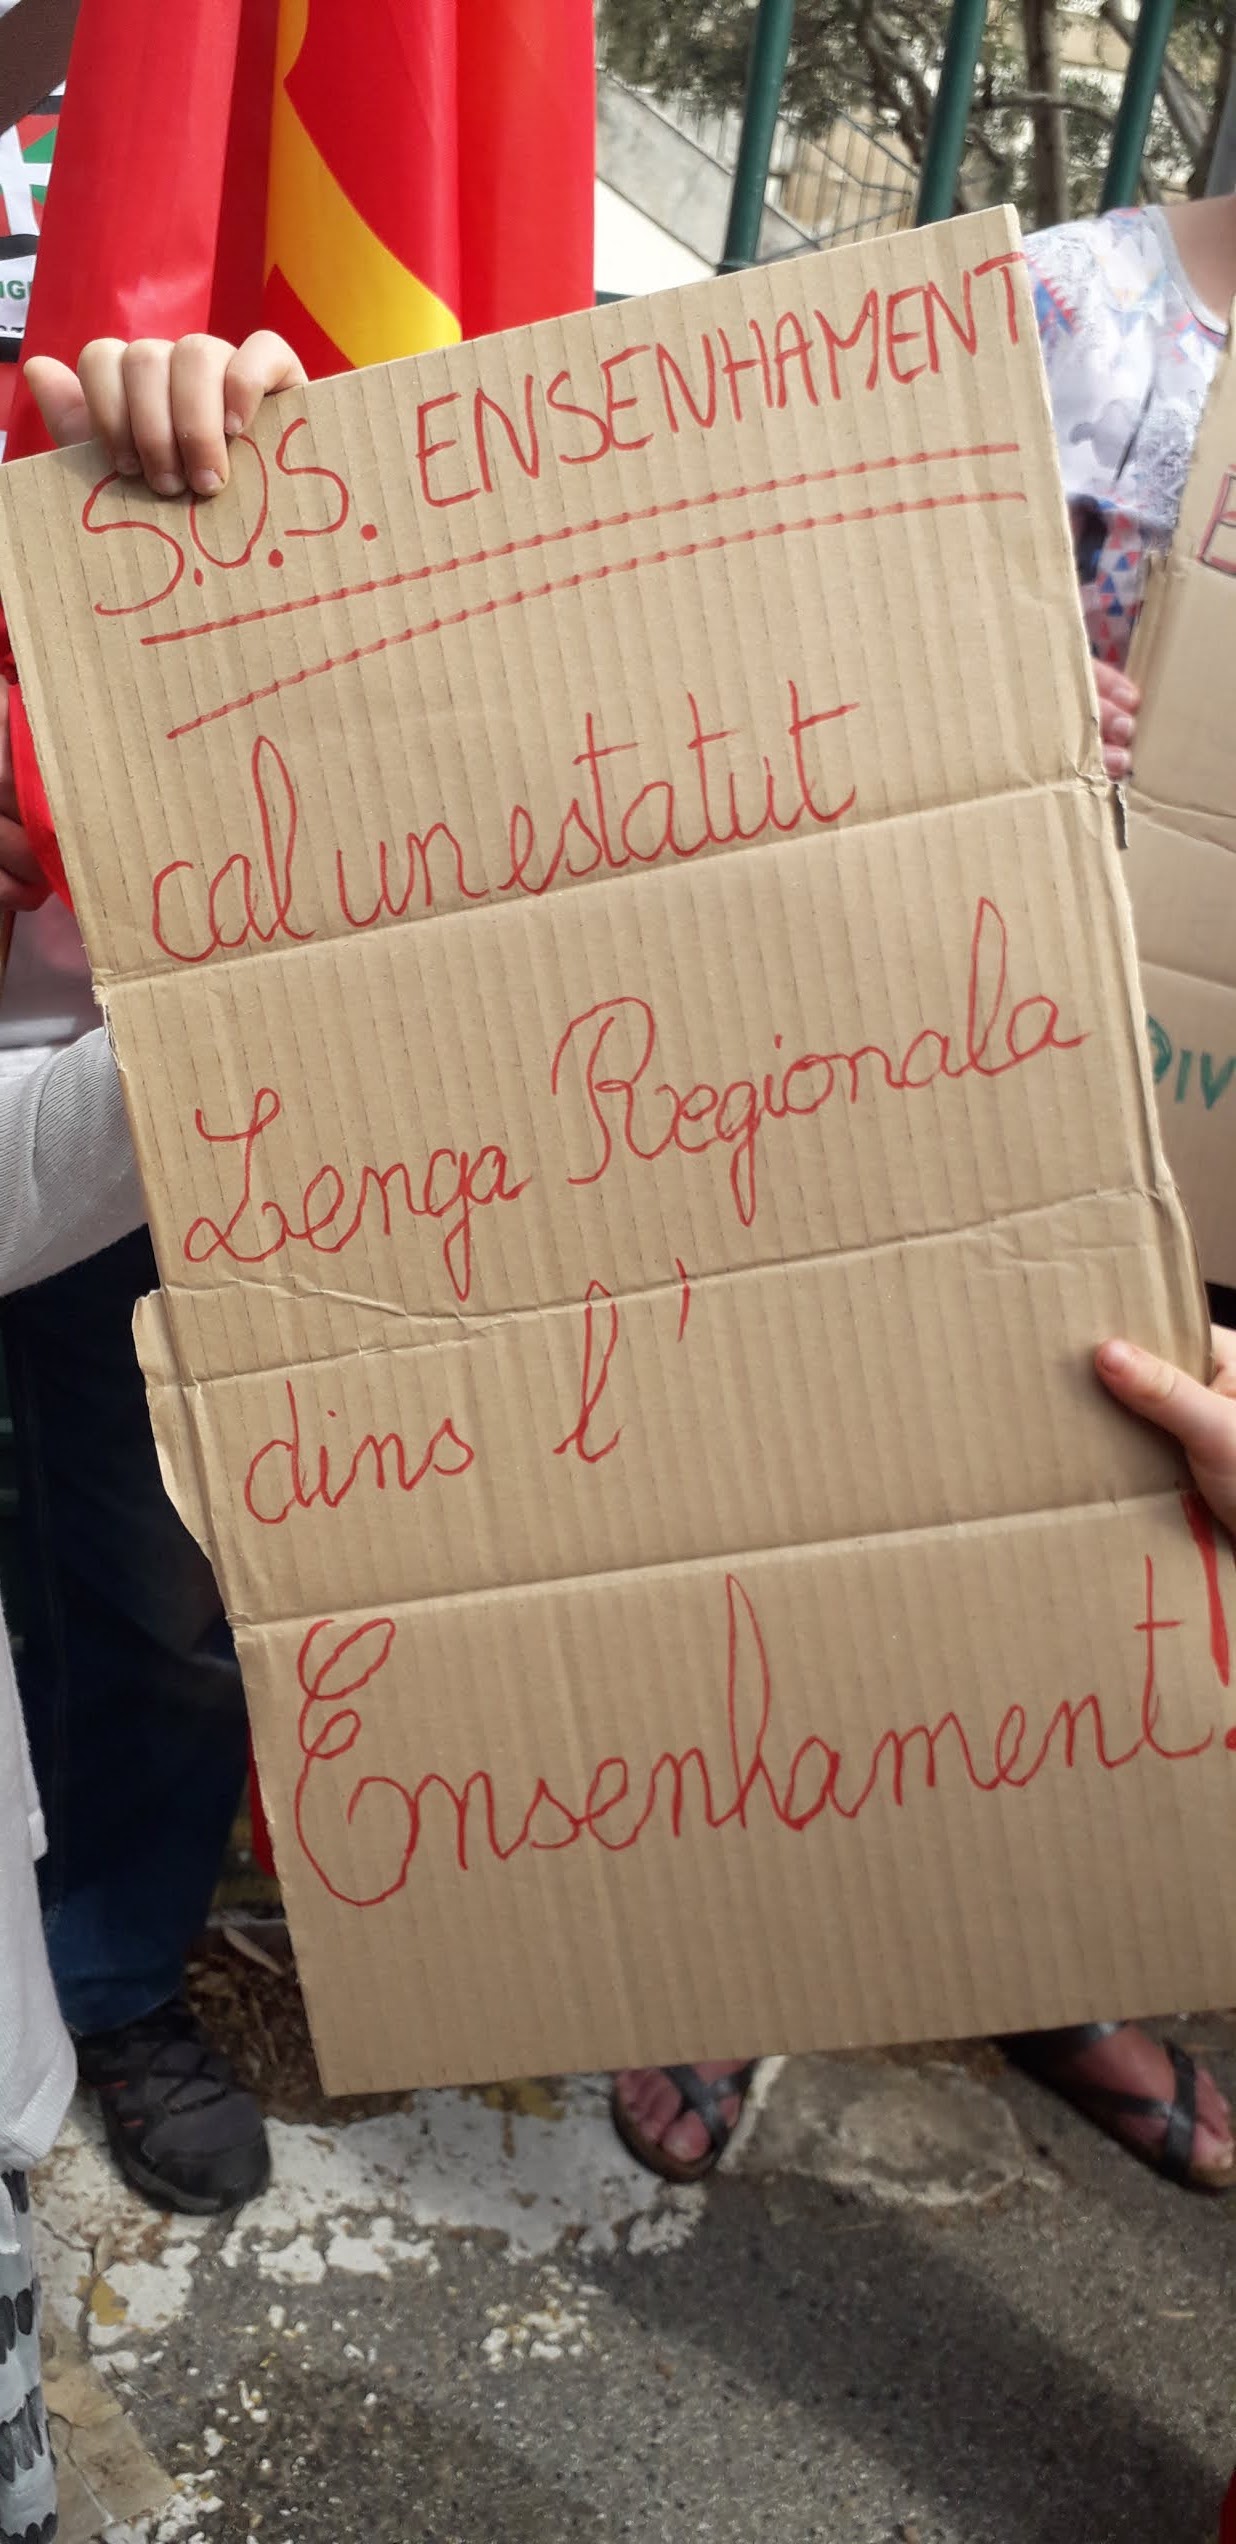 S.O.S. ENSENHAMENT
cal un estatut
Lenga Regionala
dins l'
Ensenhament!